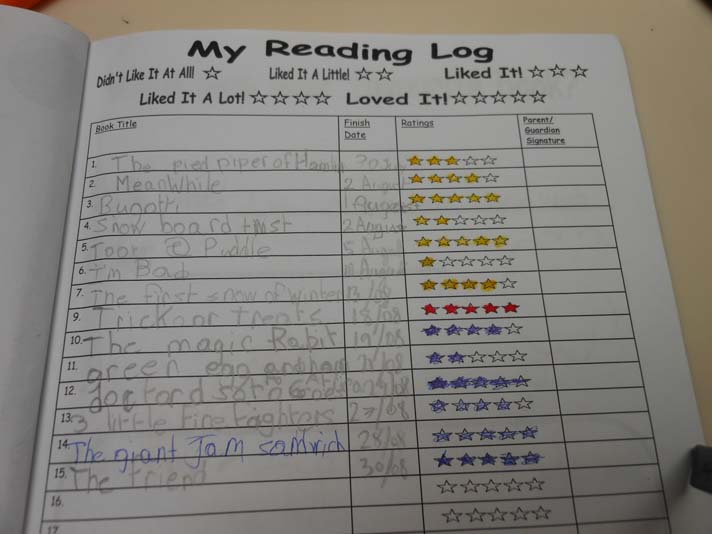 My Reading Log
Didn't Like It At All! Liked It A Little! Liked It!
Liked It A Lot! Loved It!
Book Title Finish Date Ratings Parent/ Guardian Signature
1. The pied piper of
2. Meanwhile 2 August
3. 1 August
4. Snow board 2 August
5. Toot Puddle 5
6. I'm Bad
7. The first snow of winter 13/08
9. Trick or treats 18/08
10. The magic Rabit 19/08
11. green egg
12.
13. 3 little fire fighters 27/08
14. The giant Jam samwich 28/08
15. The frien 30/08
16.
17.